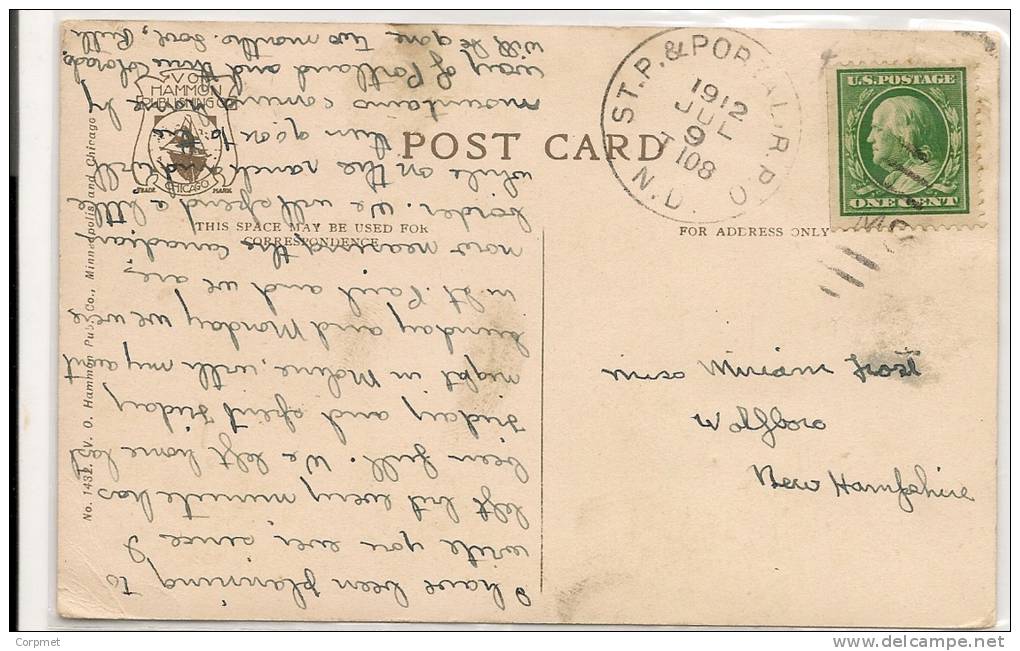 ST. P. & PORTAL. R.P.O.
1912
JUL
9
T 108
N.D.
U.S. POSTAGE
ONE CENT
V.O.
HAMMON
PUBLISHING CO
CHICAGO
TRADE MARK
POST CARD
THIS SPACE MAY BE USED FOR
CORRESPONDENCE
FOR ADDRESS ONLY
No. 1431. V. O. Hammon Pub. Co., Minneapolis and Chicago
Miss Miriam Frost
Wolfboro
New Hampshire
I have been planning to
write you ever since I
left but every minute has
been full. We left home last
Friday and spent Friday
night in Moline with my aunt
Sunday and Monday we were
in St. Paul and we are,
now nearing the Canadian
border. We will spend a little
while on the ranch and
then go on to the
mountains coming home by
way of Portland and thru Colorado
will be gone two months. Love, Ruth
Corpmet
www.delcampe.net